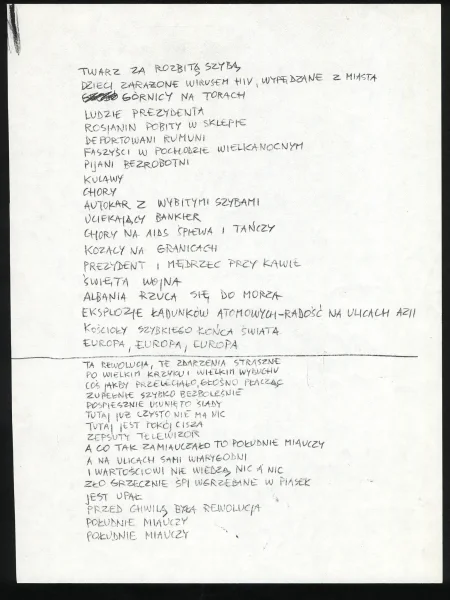 TWARZ ZA ROZBITĄ SZYBĄ
DZIECI ZARAŻONE WIRUSEM HIV, WYPĘDZANE Z MIASTA
GÓRNICY NA TORACH
LUDZIE PREZYDENTA
ROSJANIN POBITY W SKLEPIE
DEPORTOWANI RUMUNI
FASZYŚCI W POCHODZIE WIELKANOCNYM
PIJANI BEZROBOTNI
KULAWY
CHORY
AUTOKAR Z WYBITYMI SZYBAMI
UCIEKAJĄCY BANKIER
CHORY NA AIDS ŚPIEWA I TAŃCZY
KOZACY NA GRANICACH
PREZYDENT I MĘDRZEC PRZY KAWIE
ŚWIĘTA WOJNA
ALBANIA RZUCA SIĘ DO MORZA
EKSPLOZJE ŁADUNKÓW ATOMOWYCH-RADOŚĆ NA ULICACH AZJI
KOŚCIOŁY SZYBKIEGO KOŃCA ŚWIATA
EUROPA, EUROPA, EUROPA
TA REWOLUCJA, TE ZDARZENIA STRASZNE
PO WIELKIM KRZYKU I WIELKIM WYBUCHU
COŚ JAKBY PRZELECIAŁO, GŁOŚNO PŁACZĄC
ZUPEŁNIE SZYBKO BEZBOLEŚNIE
POSPIESZNIE USUNIĘTO ŚLADY
TUTAJ JUŻ CZYSTO NIE MA NIC
TUTAJ JEST POKÓJ CISZA
ZEPSUTY TELEWIZOR
A CO TAK ZAMIAUCZAŁO TO POŁUDNIE MIAUCZY
A NA ULICACH SAMI WIARYGODNI
I WARTOŚCIOWI NIE WIEDZĄ NIC A NIC
ZŁO GRZECZNIE ŚPI WGRZEBANE W PIASEK
JEST UPAŁ
PRZED CHWILĄ BYŁA REWOLUCJA
POŁUDNIE MIAUCZY
POŁUDNIE MIAUCZY